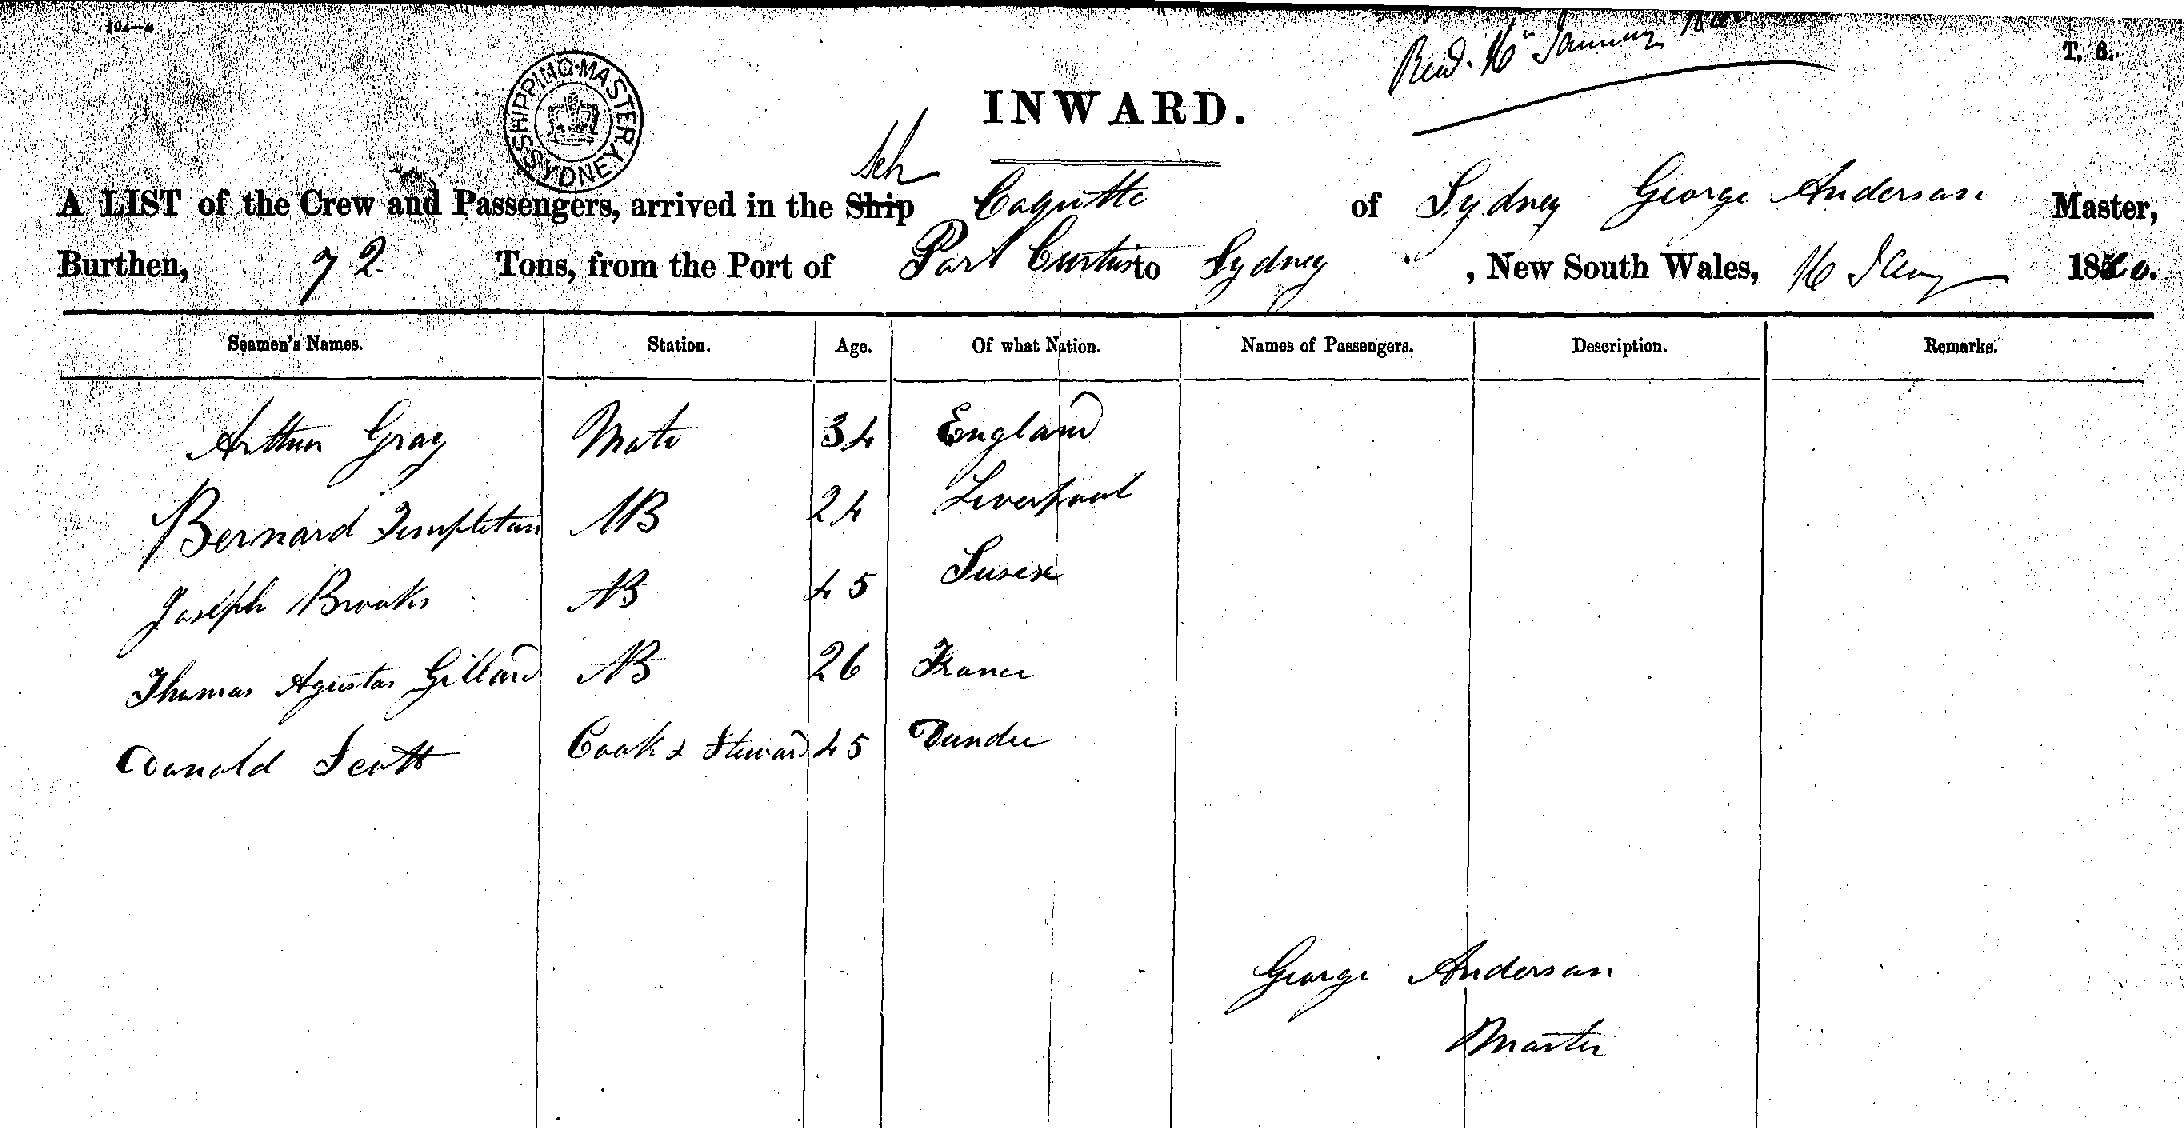 T. 6.
SHIPPING MASTER SYDNEY
Recd. 16 January
INWARD.
Sch
A LIST of the Crew and Passengers, arrived in the Ship Coquette of Sydney George Anderson Master,
Burthen, 72 Tons, from the Port of Port Curtis to Sydney, New South Wales, 16 Jany 1860.
Seamen's Names. Station. Age. Of what Nation. Names of Passengers. Description. Remarks.
Arthur Gray Mate 34 England
Bernard Templeton AB 24 Liverpool
Joseph Brooks AB 45 Susex
Thomas Agustas Gillard AB 26 France
Donald Scott Cook & Steward 45 Dundee
George Anderson
Master